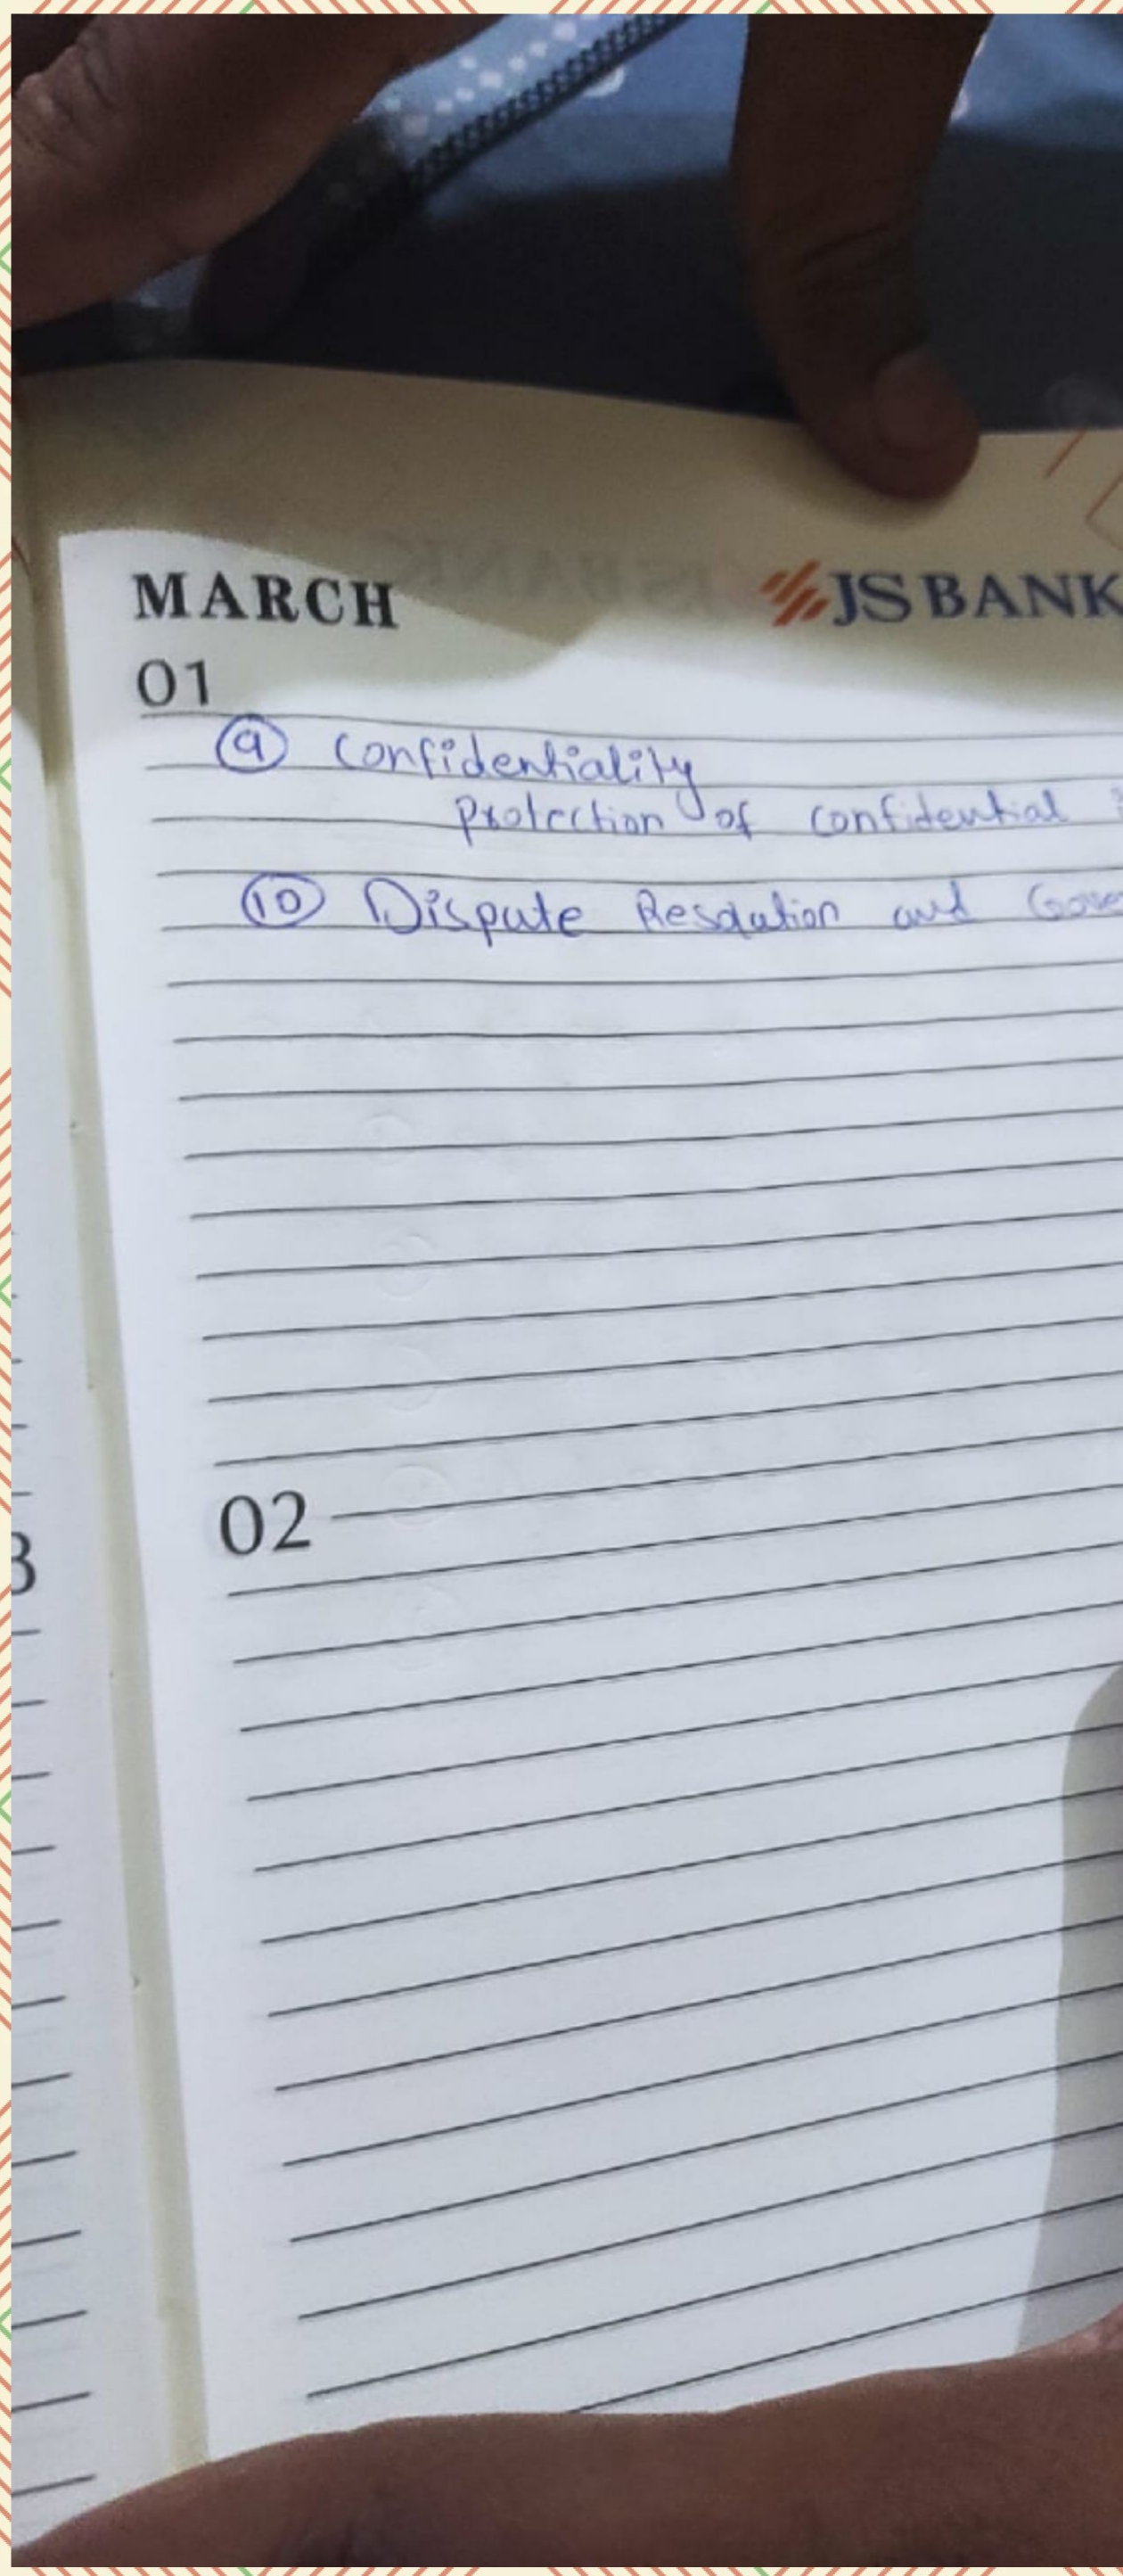 MARCH
JS BANK
01
9 Confidentiality
Protection of confidential
10 Dispute Resolution and
02
3